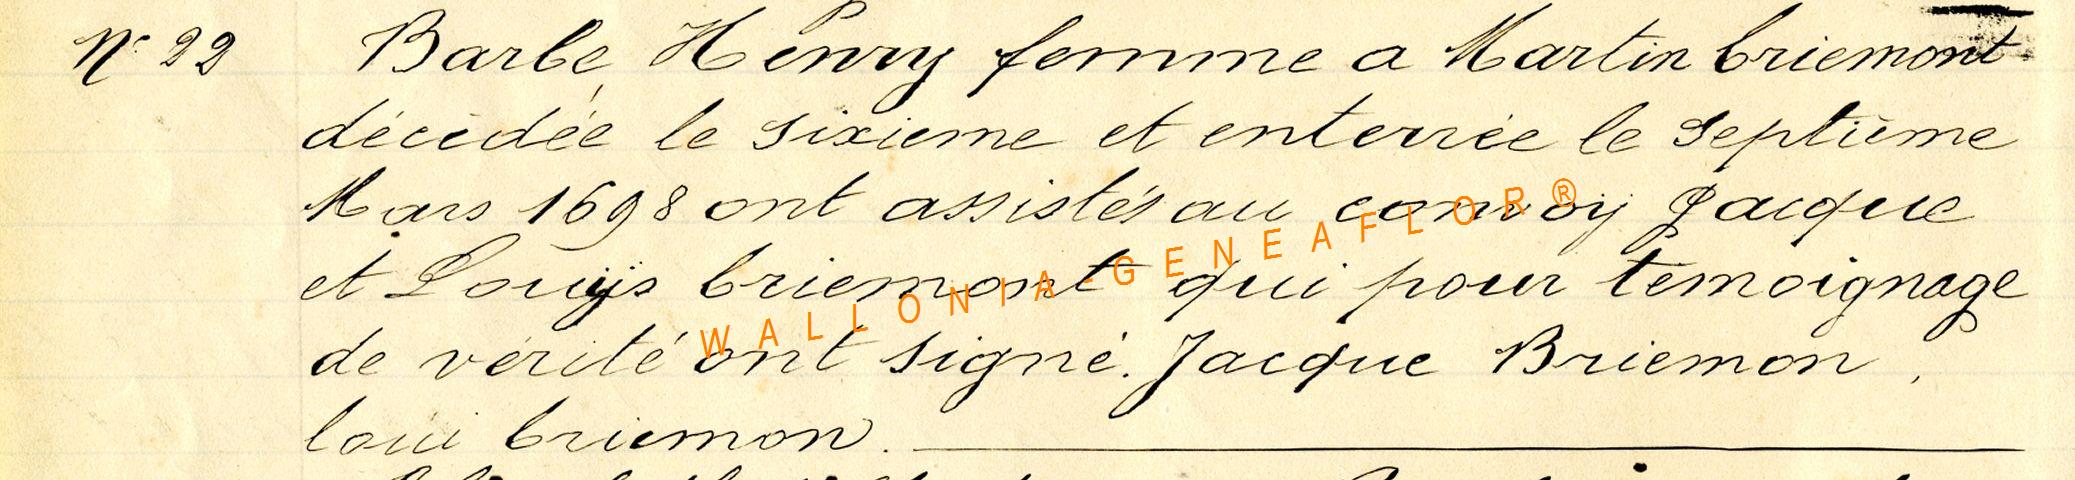 N° 22 Barbe Henry femme a Martin briemont
décédée le sixieme et enterrée le septième
Mars 1698 ont assistés au convoÿ Jacque
et Louÿs briemont qui pour temoignage
de vérité ont signé. Jacque Briemon,
loui briemon.
WALLONIA-GENEAFLOR®